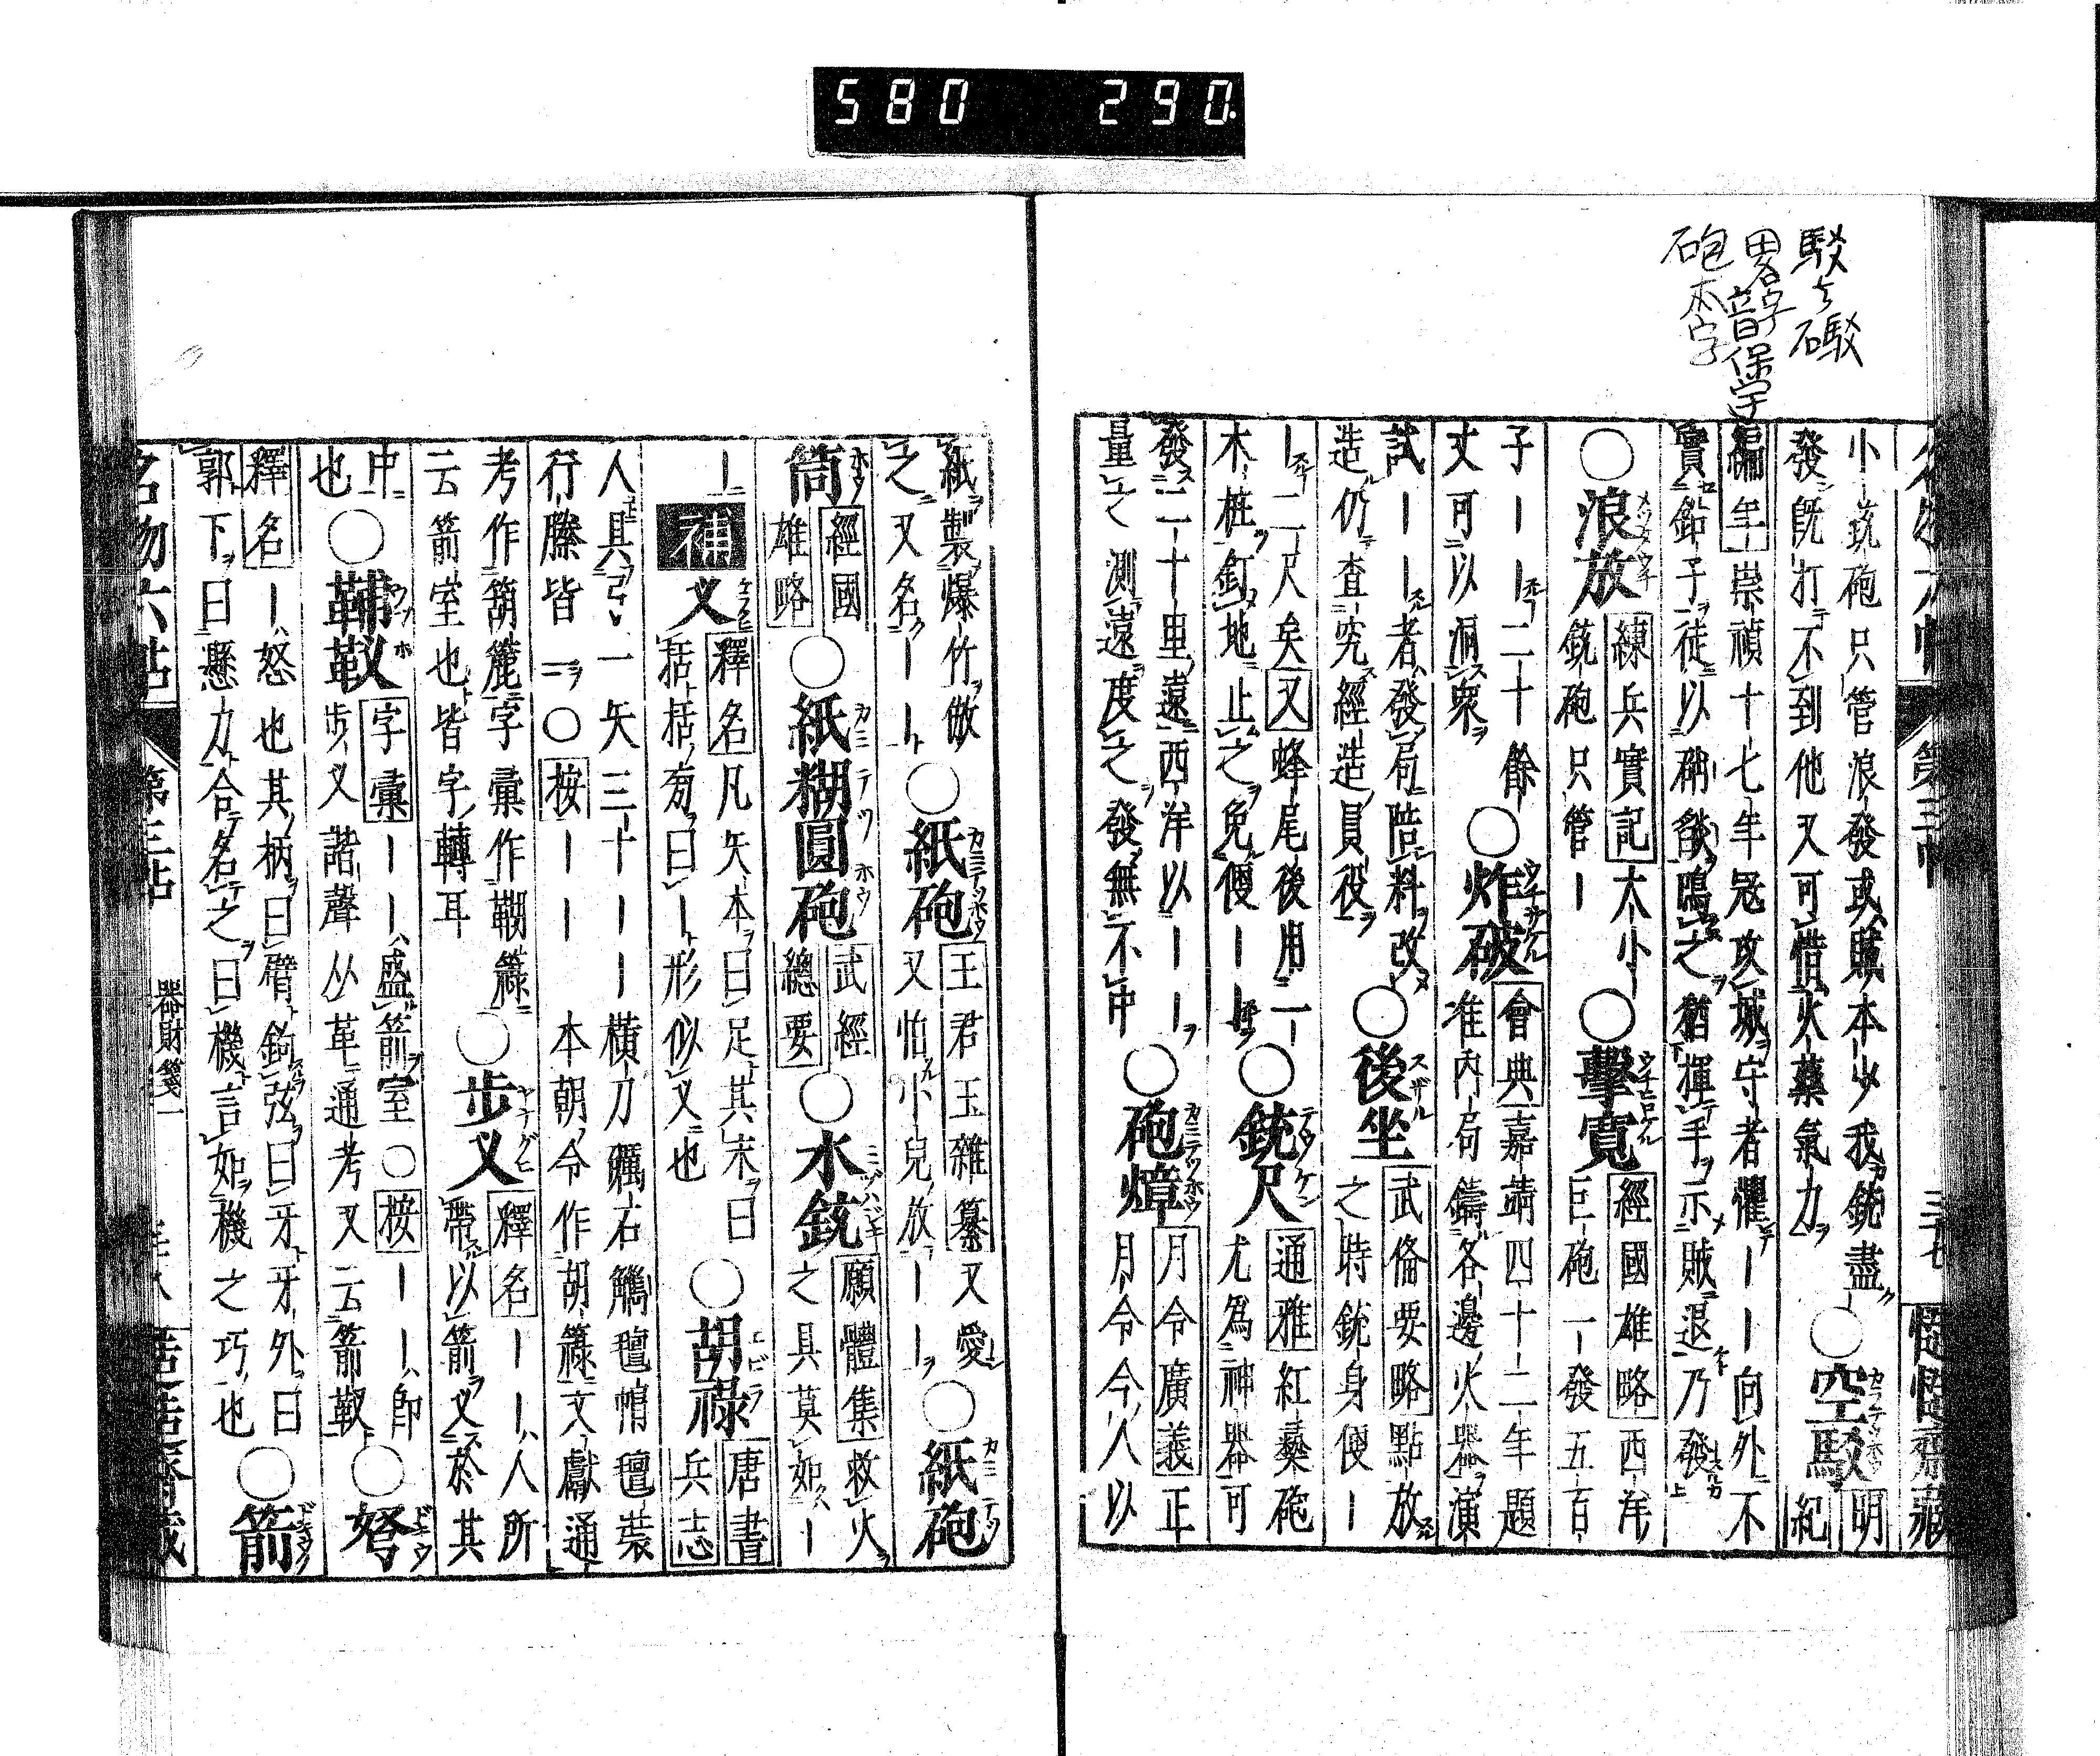 580 290
駁与䮕
畧字
音保字
砲本字
第三帖
小銃砲只管浪發或賊本少我銃盡
發既打不到他又可惜火藥氣力○空駁 明紀
編年 崇禎十七年冦攻城守者懼ーー向外不
實鉛子徒以硝燄鳴之猶揮手示賊退乃發
○浪放 練兵實記 大小ー銃砲只管ー ○擊寬 經國雄略 西洋巨砲一發五百
子ーー二十餘丈可以洞衆 ○炸破 會典 嘉靖四十二年題准內局鑄各邊火器演
試ーー者發局陪料改造仍査究經造員役 ○後坐 武俻要略 點放之時銃身便ー
ー二尺矣 又 蜂尾後用一木樁釘地止之免便ーー ○銃尺 通雅 紅彝砲尤爲神器可
發二十里遠西洋以ーー量之測遠度之發無不中 ○砲㷰 月令廣義 正月令今人以
紙製爆竹倣之又名ーー ○紙砲 王君玉雜纂 又愛又怕小兒放ーー ○紙砲
筒 經國雄略 ○紙糊圓砲 武經總要 ○水銃 願體集 救火之具莫如ー
ー 補 叉 釋名 凡矢本曰足其末曰括括旁曰ー形似叉也 ○胡祿 唐書兵志
人具弓一矢三十ーー橫刀礪石觿氊帽氊裝行縢皆一 ○按ーー本朝令作胡籙文獻通
考作箶簏字彙作鞴籙云箭室也皆字轉耳 ○步叉 釋名 ーー人所帶以箭叉於其
中也 ○鞴靫 字彙 ーー盛箭室○按ーー卽步叉諧聲从革通考又云箭靫 ○弩
釋名 ー怒也其柄曰臂鉤弦曰牙牙外曰郭下曰懸刀合名之曰機言如機之巧也 ○箭
名物六帖
第三帖
器財箋一